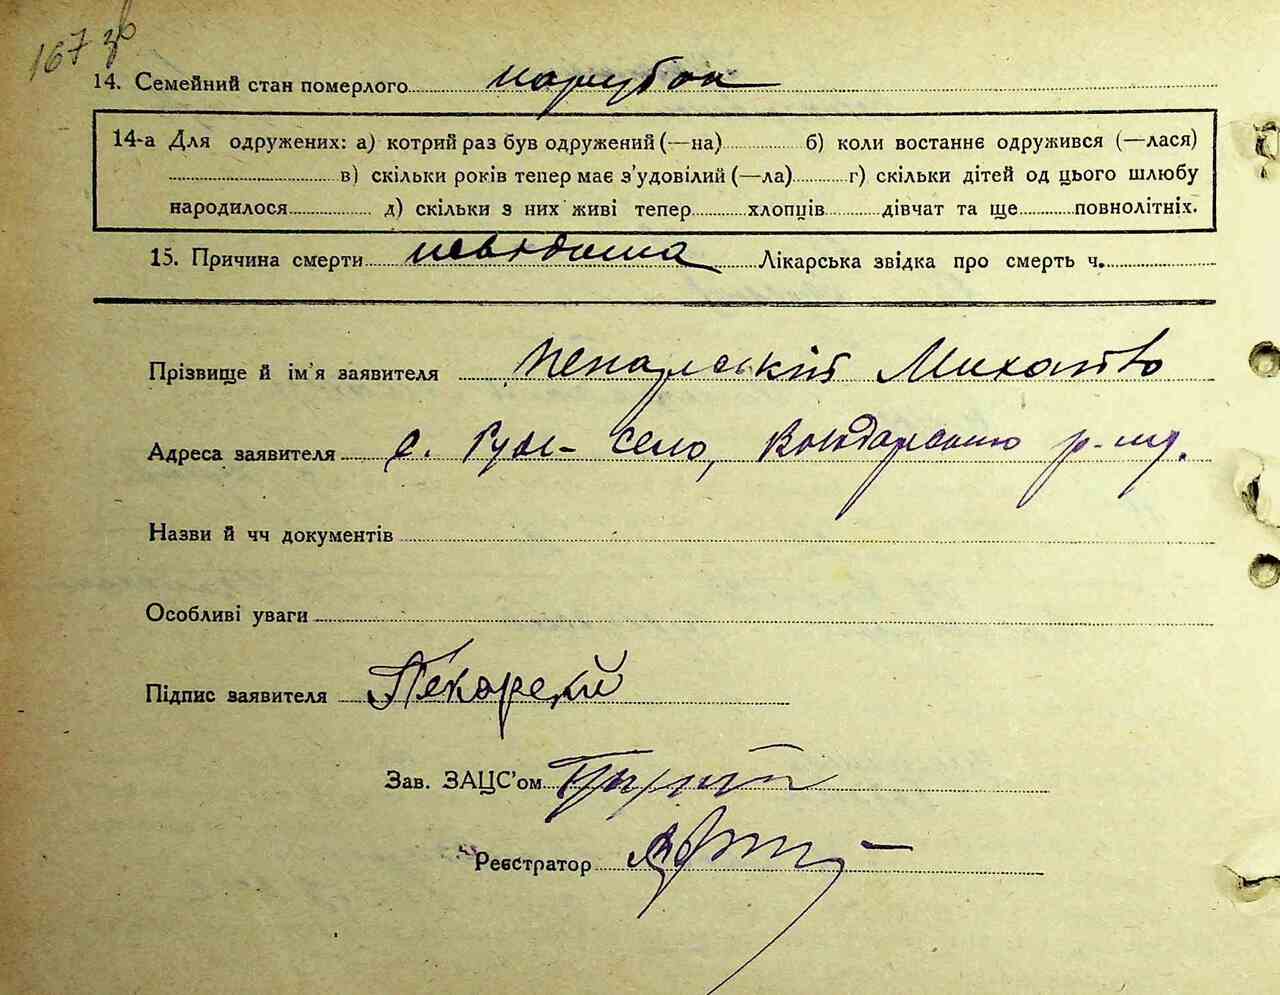 167 зв
14. Семейний стан померлого парубок
14-а Для одружених: а) котрий раз був одружений (—на) б) коли востаннє одружився (—лася)
в) скільки років тепер має з'удовілий (—ла) г) скільки дітей од цього шлюбу
народилося д) скільки з них живі тепер хлопців дівчат та ще повнолітніх.
15. Причина смерти невідома Лікарська звідка про смерть ч.
Прізвище й ім'я заявителя Михайло
Адреса заявителя с. село, р-ну.
Назви й чч документів
Особливі уваги
Підпис заявителя Пекарский
Зав. ЗАЦС'ом
Реєстратор